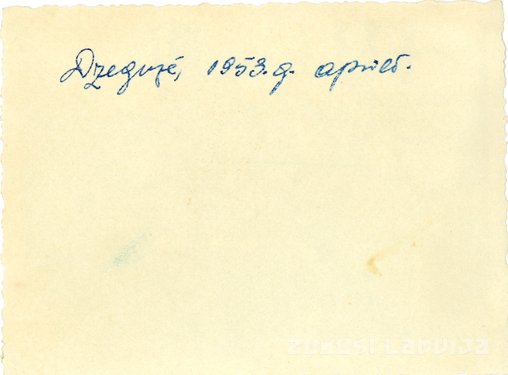 Dzegužē, 1953.g. aprīlī.
zudusi Latvija